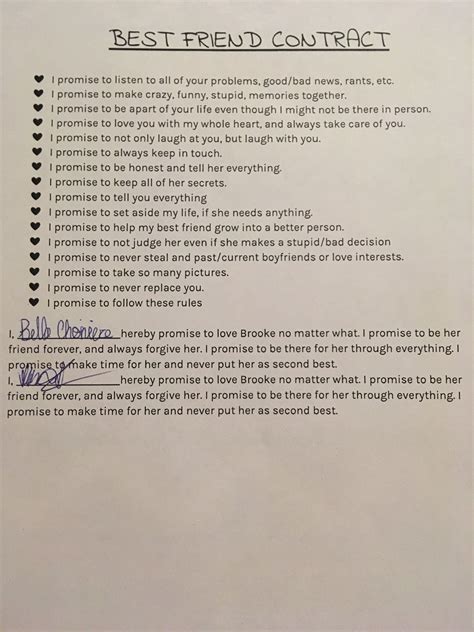 BEST FRIEND CONTRACT
I promise to listen to all of your problems, good/bad news, rants, etc.
I promise to make crazy, funny, stupid, memories together.
I promise to be apart of your life even though I might not be there in person.
I promise to love you with my whole heart, and always take care of you.
I promise to not only laugh at you, but laugh with you.
I promise to always keep in touch.
I promise to be honest and tell her everything.
I promise to keep all of her secrets.
I promise to tell you everything
I promise to set aside my life, if she needs anything.
I promise to help my best friend grow into a better person.
I promise to not judge her even if she makes a stupid/bad decision
I promise to never steal and past/current boyfriends or love interests.
I promise to take so many pictures.
I promise to never replace you.
I promise to follow these rules
I, Belle hereby promise to love Brooke no matter what. I promise to be her
friend forever, and always forgive her. I promise to be there for her through everything. I
promise to make time for her and never put her as second best.
I, hereby promise to love Brooke no matter what. I promise to be her
friend forever, and always forgive her. I promise to be there for her through everything. I
promise to make time for her and never put her as second best.